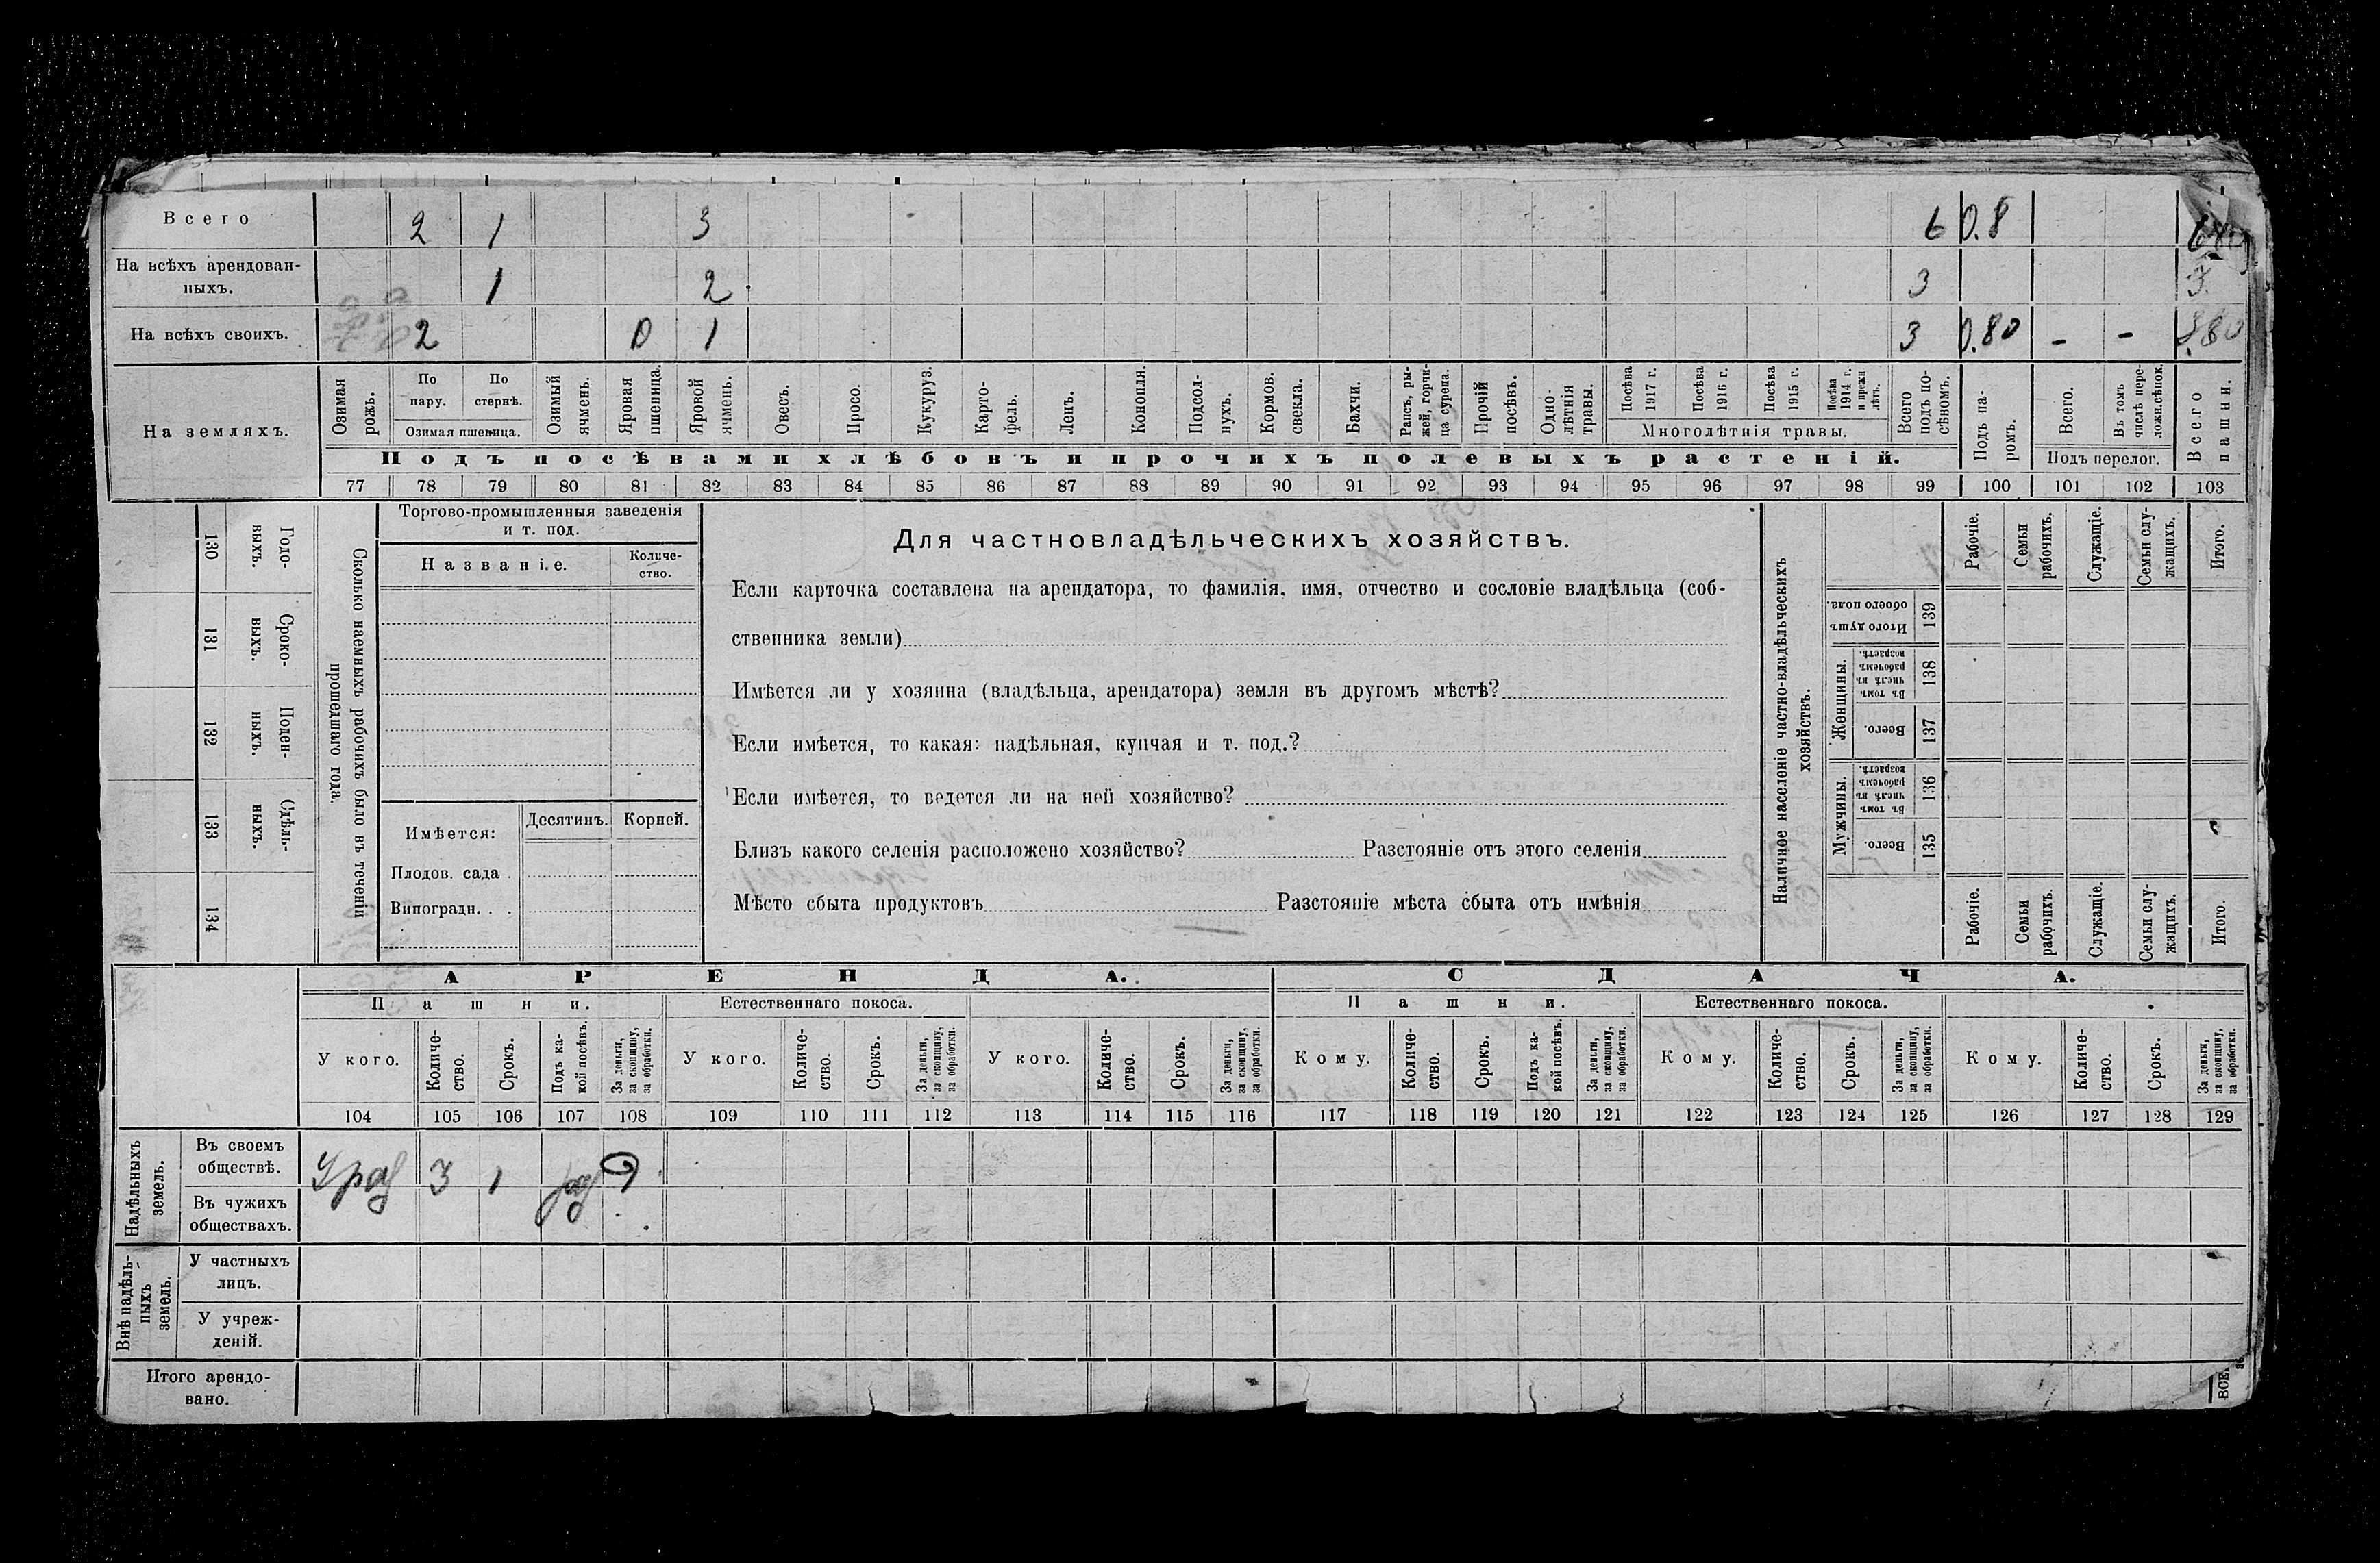 Всего 2 1 3 6 0.8
На всѣхъ арендован-
ныхъ. 1 2 3 3.
На всѣхъ своихъ. 2 0 1 3 0.80 - - 3.80
На земляхъ.
Озимая рожь.
По пару.
По стернѣ.
Озимая пшеница.
Озимый ячмень.
Яровая пшеница.
Яровой ячмень.
Овесъ.
Просо.
Кукуруз.
Карто-
фель.
Ленъ.
Конопля.
Подсол-
нухъ.
Кормов.
свекла.
Бахчи.
Рапсъ, ры-
жей, горчи-
ца сурепа.
Прочій
посѣвъ.
Одно-
лѣтнія
травы.
Посѣва
1917 г.
Посѣва
1916 г.
Посѣва
1915 г.
Посѣва
1914 г.
и прежн
лѣтъ.
Многолѣтнія травы.
Всего
подъ по-
сѣвомъ.
Подъ па-
ромъ.
Всего.
Въ томъ
числѣ пере-
ложн.сѣнок.
Подъ перелог.
Всего
пашни.
Подъ посѣвами хлѣбовъ и прочихъ полевыхъ растеній.
77 78 79 80 81 82 83 84 85 86 87 88 89 90 91 92 93 94 95 96 97 98 99 100 101 102 103
130 Годо-
выхъ.
131 Сроко-
выхъ.
132 Поден-
ныхъ.
133 Сдѣль-
ныхъ.
134
Сколько наемныхъ рабочихъ было въ теченіи
прошедшаго года.
Торгово-промышленныя заведенія
и т. под.
Названіе.
Количе-
ство.
Имѣется:
Десятинъ.
Корней.
Плодов. сада .
Виноградн. . .
Для частновладѣльческихъ хозяйствъ.
Если карточка составлена на арендатора, то фамилія, имя, отчество и сословіе владѣльца (соб-
ственника земли)
Имѣется ли у хозяина (владѣльца, арендатора) земля въ другомъ мѣстѣ?
Если имѣется, то какая: надѣльная, купчая и т. под.?
Если имѣется, то ведется ли на ней хозяйство?
Близъ какого селенія расположено хозяйство? Разстояніе отъ этого селенія
Мѣсто сбыта продуктовъ Разстояніе мѣста сбыта отъ имѣнія
Наличное населеніе частно-владѣльческихъ
хозяйствъ.
Рабочіе.
Семьи
рабочихъ.
Служащіе.
Семьи слу-
жащихъ.
Итого.
Итого душъ
обоего пола.
139
Женщины.
Въ томъ
числѣ въ
рабочемъ
возрастѣ.
138
Всего.
137
Мужчины.
Въ томъ
числѣ въ
рабочемъ
возрастѣ.
136
Всего.
135
Рабочіе.
Семьи
рабочихъ.
Служащіе.
Семьи слу-
жащихъ.
Итого.
АРЕНДА.
СДАЧА.
Пашни.
Естественнаго покоса.
Пашни.
Естественнаго покоса.
У кого.
Количе-
ство.
Срокъ.
Подъ ка-
кой посѣвъ.
За деньги,
за скопщину,
за обработки.
У кого.
Количе-
ство.
Срокъ.
За деньги,
за скопщину,
за обработки.
У кого.
Количе-
ство.
Срокъ.
За деньги,
за скопщину,
за обработки.
Кому.
Количе-
ство.
Срокъ.
Подъ ка-
кой посѣвъ.
За деньги,
за скопщину,
за обработки.
Кому.
Количе-
ство.
Срокъ.
За деньги,
за скопщину,
за обработки.
Кому.
Количе-
ство.
Срокъ.
За деньги,
за скопщину,
за обработки.
104 105 106 107 108 109 110 111 112 113 114 115 116 117 118 119 120 121 122 123 124 125 126 127 128 129
Надѣльныхъ
земель.
Въ своемъ
обществѣ.
3 1
Въ чужихъ
обществахъ.
Внѣ надѣль-
ныхъ
земель.
У частныхъ
лицъ.
У учреж-
деній.
Итого арендо-
вано.